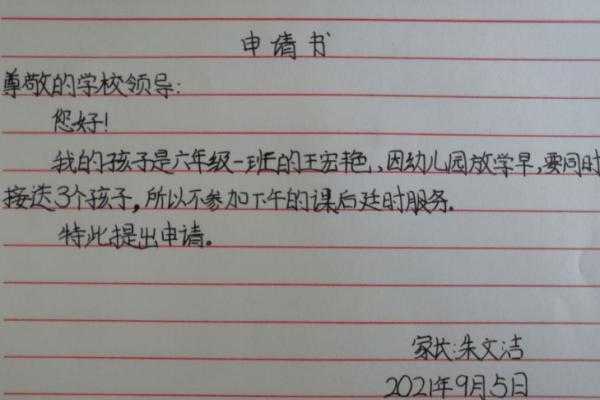 申请书
尊敬的学校领导:
您好!
我的孩子是六年级一班的王宏艳、因幼儿园放学早,要同时
接送3个孩子,所以不参加下午的课后延时服务.
特此提出申请。
家长:朱文洁
2021年9月5日